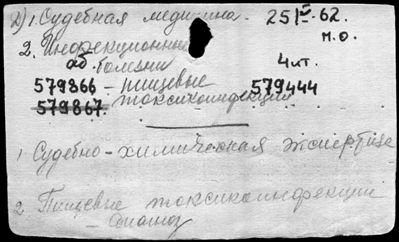 2) 1. Судебная медицина. 251 5 62.
м.о.
2. Инфекционные
аб. болезни 4 ит.
579866 - пищевые 579444
579867. токсикоинфекции
1 Судебно-химическая экспертиза
2 Пищевые токсикоинфекции
- диагноз